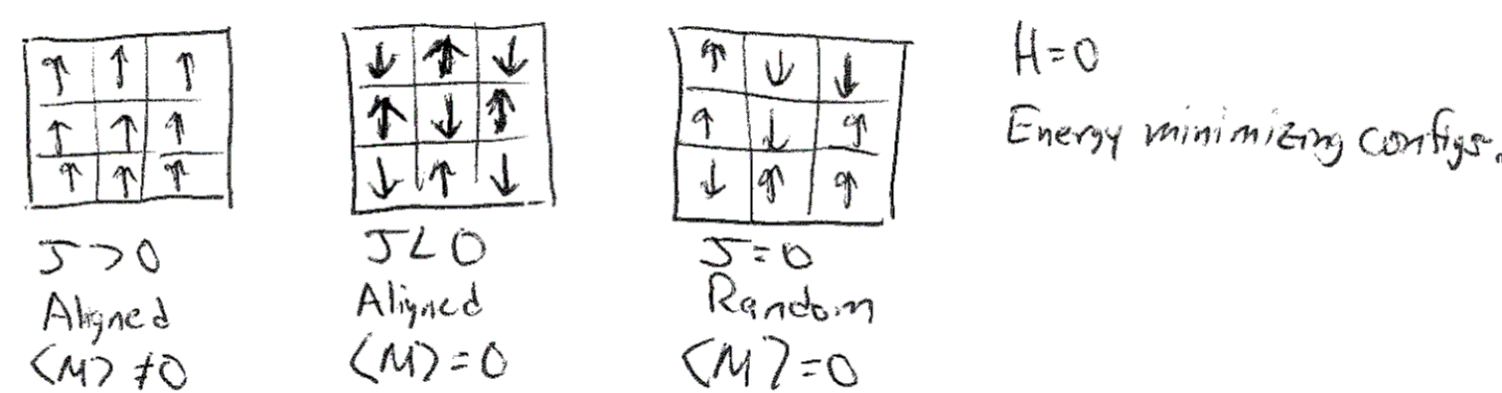 ↑ ↑ ↑
↑ ↑ ↑
↑ ↑ ↑
J > 0
Aligned
⟨M⟩ ≠ 0
↓ ↑ ↓
↑ ↓ ↑
↓ ↑ ↓
J < 0
Aligned
⟨M⟩ = 0
↑ ↓ ↓
↑ ↓ ↑
↓ ↑ ↑
J = 0
Random
⟨M⟩ = 0
H = 0
Energy minimizing configs.